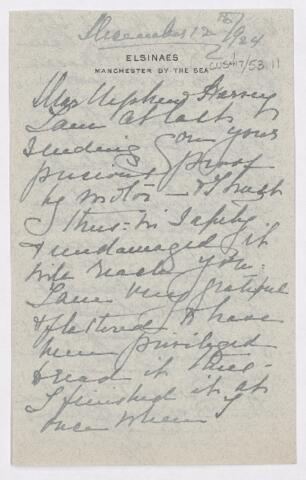 December 12th/1924
ELSINAES
MANCHESTER BY THE SEA
CUS417/53 11
Dear Nephew Harvey
I am at last
sending on your
precious proof
by motor – & I trust
thus – in safety
& undamaged it
will reach you.
I am very grateful
& flattered to have
been privileged
to read it thus –
I finished it at
once when I